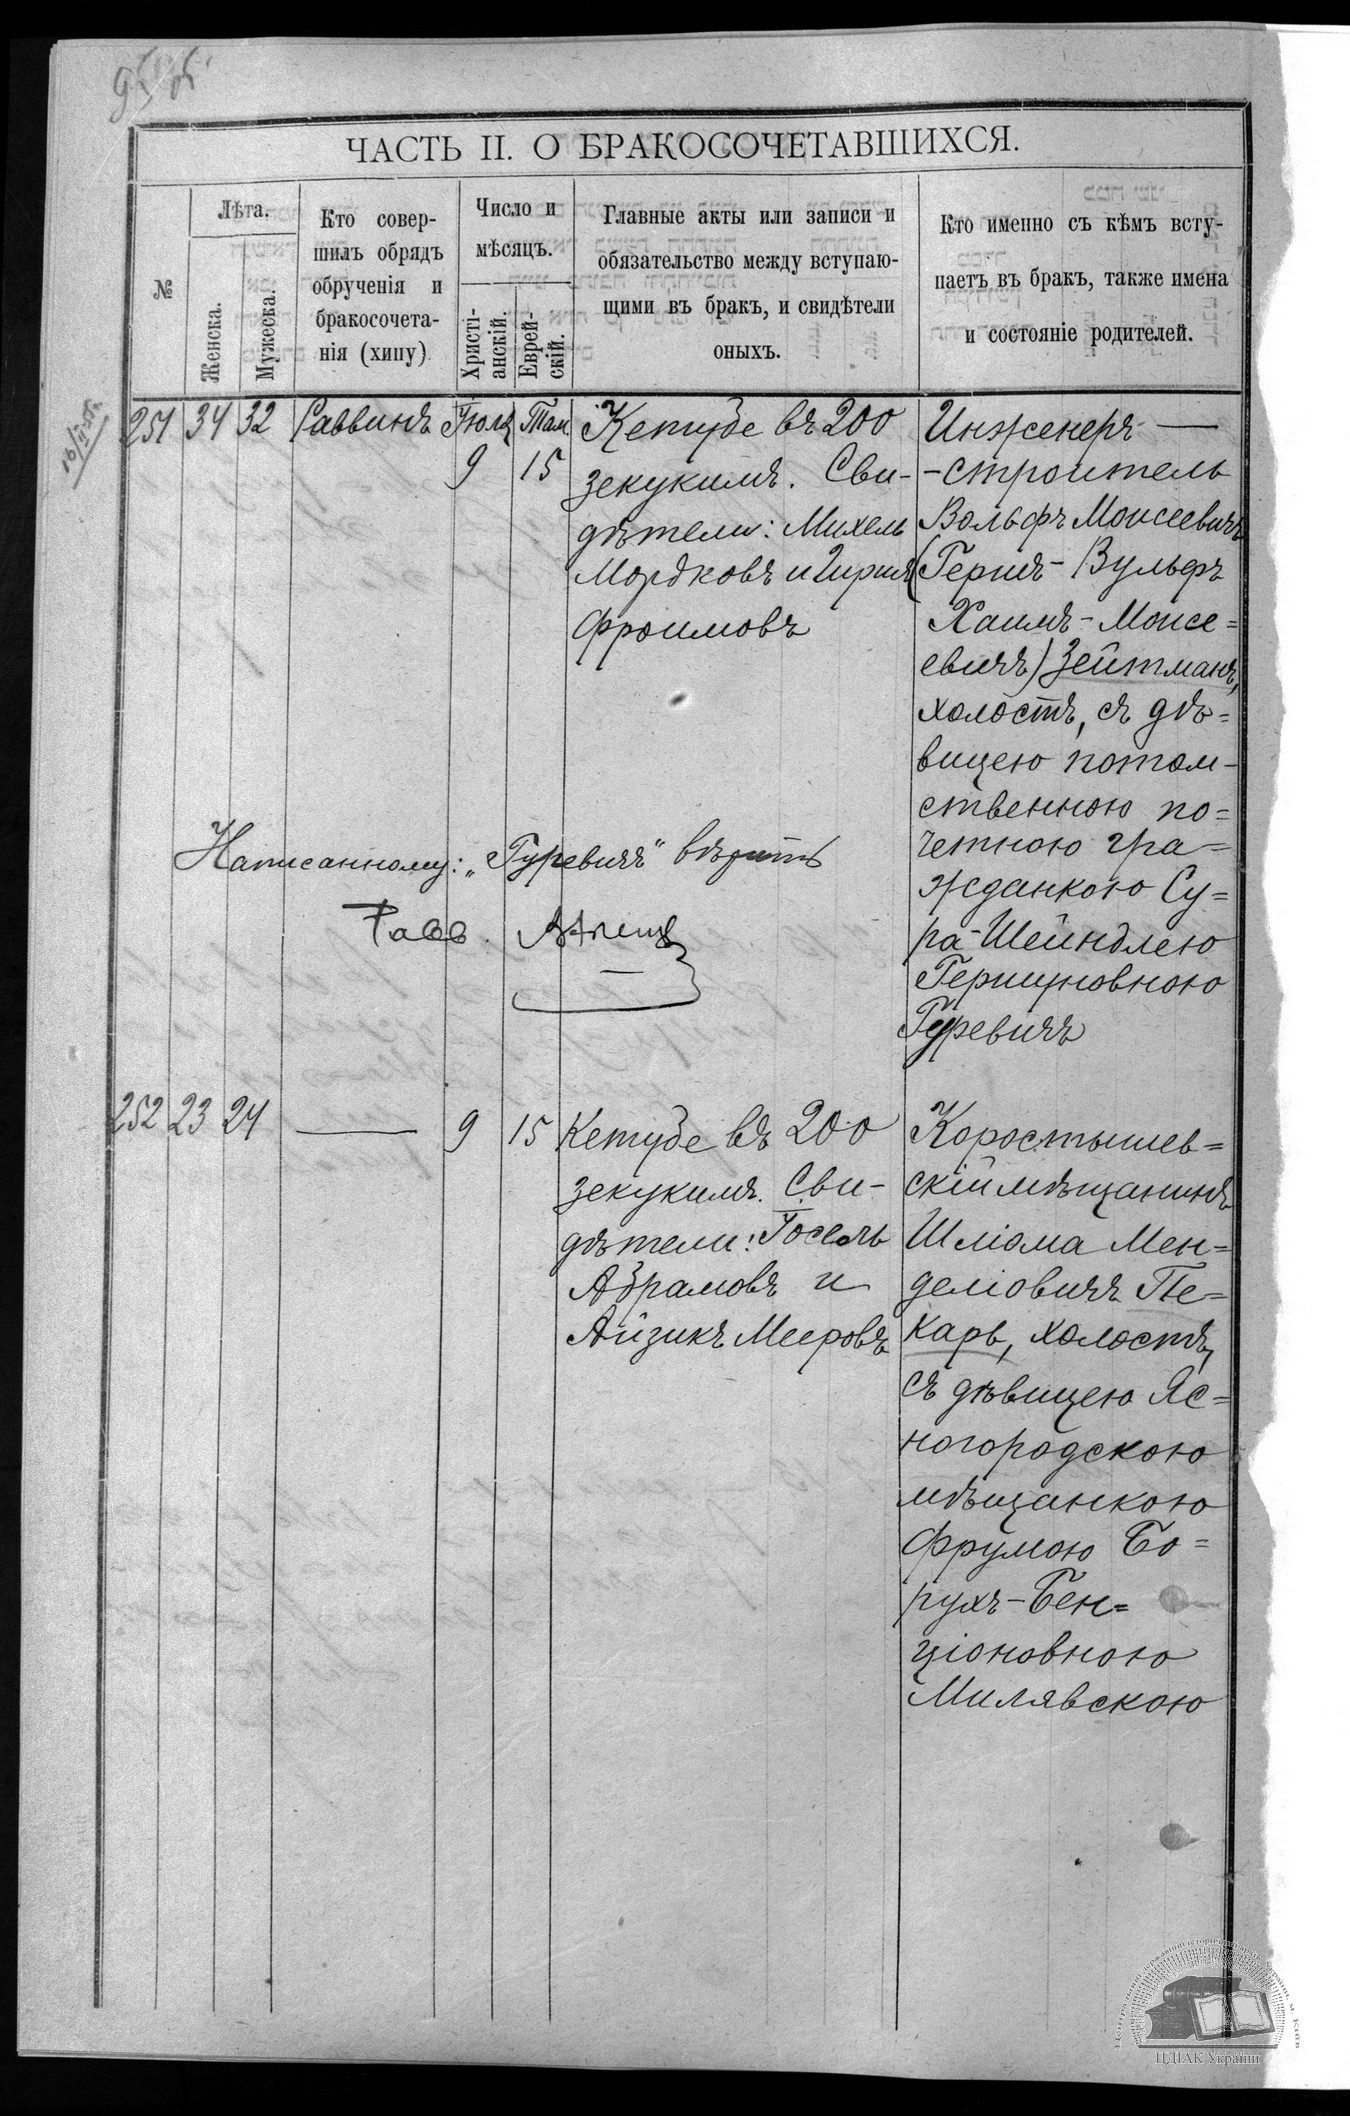 95 об.
ЧАСТЬ II. О БРАКОСОЧЕТАВШИХСЯ.
№
Лѣта.
Женска.
Мужеска.
Кто совер-
шилъ обрядъ
обрученія и
бракосочета-
нія (хипу)
Число и
мѣсяцъ.
Христі-
анскій.
Еврей-
скій.
Главные акты или записи и
обязательство между вступаю-
щими въ бракъ, и свидѣтели
оныхъ.
Кто именно съ кѣмъ всту-
паетъ въ бракъ, также имена
и состояніе родителей.
251 34 32 Раввинъ Іюля 9 Там. 15
Кетубе въ 200
зекукимъ. Сви-
дѣтели: Михель
Мордковъ и Гиршъ
Фроимовъ
Инженеръ —
-строитель
Вольфъ Моисеевичъ
(Гершъ-Вульфъ
Хаимъ-Моисе=
евичъ) Зейтманъ,
холостъ, съ дѣ=
вицею потом-
ственною по=
четною гра=
жданкою Су=
ра-Шейндлею
Гершуновною
Гуревичъ
Написанному: „Гуревичъ" вѣрить
Равв.
252 23 24 — 9 15
Кетубе въ 200
зекукимъ. Сви-
дѣтели: Іосель
Абрамовъ и
Айзикъ Мееровъ
Коростышев=
скій мѣщанинъ
Шліома Мен=
деліовичъ Пе=
карь, холостъ,
съ дѣвицею Яс=
ногородскою
мѣщанкою
Фрумою Бо=
рухъ-Бен=
ціоновною
Милявскою
ЦДІАК України